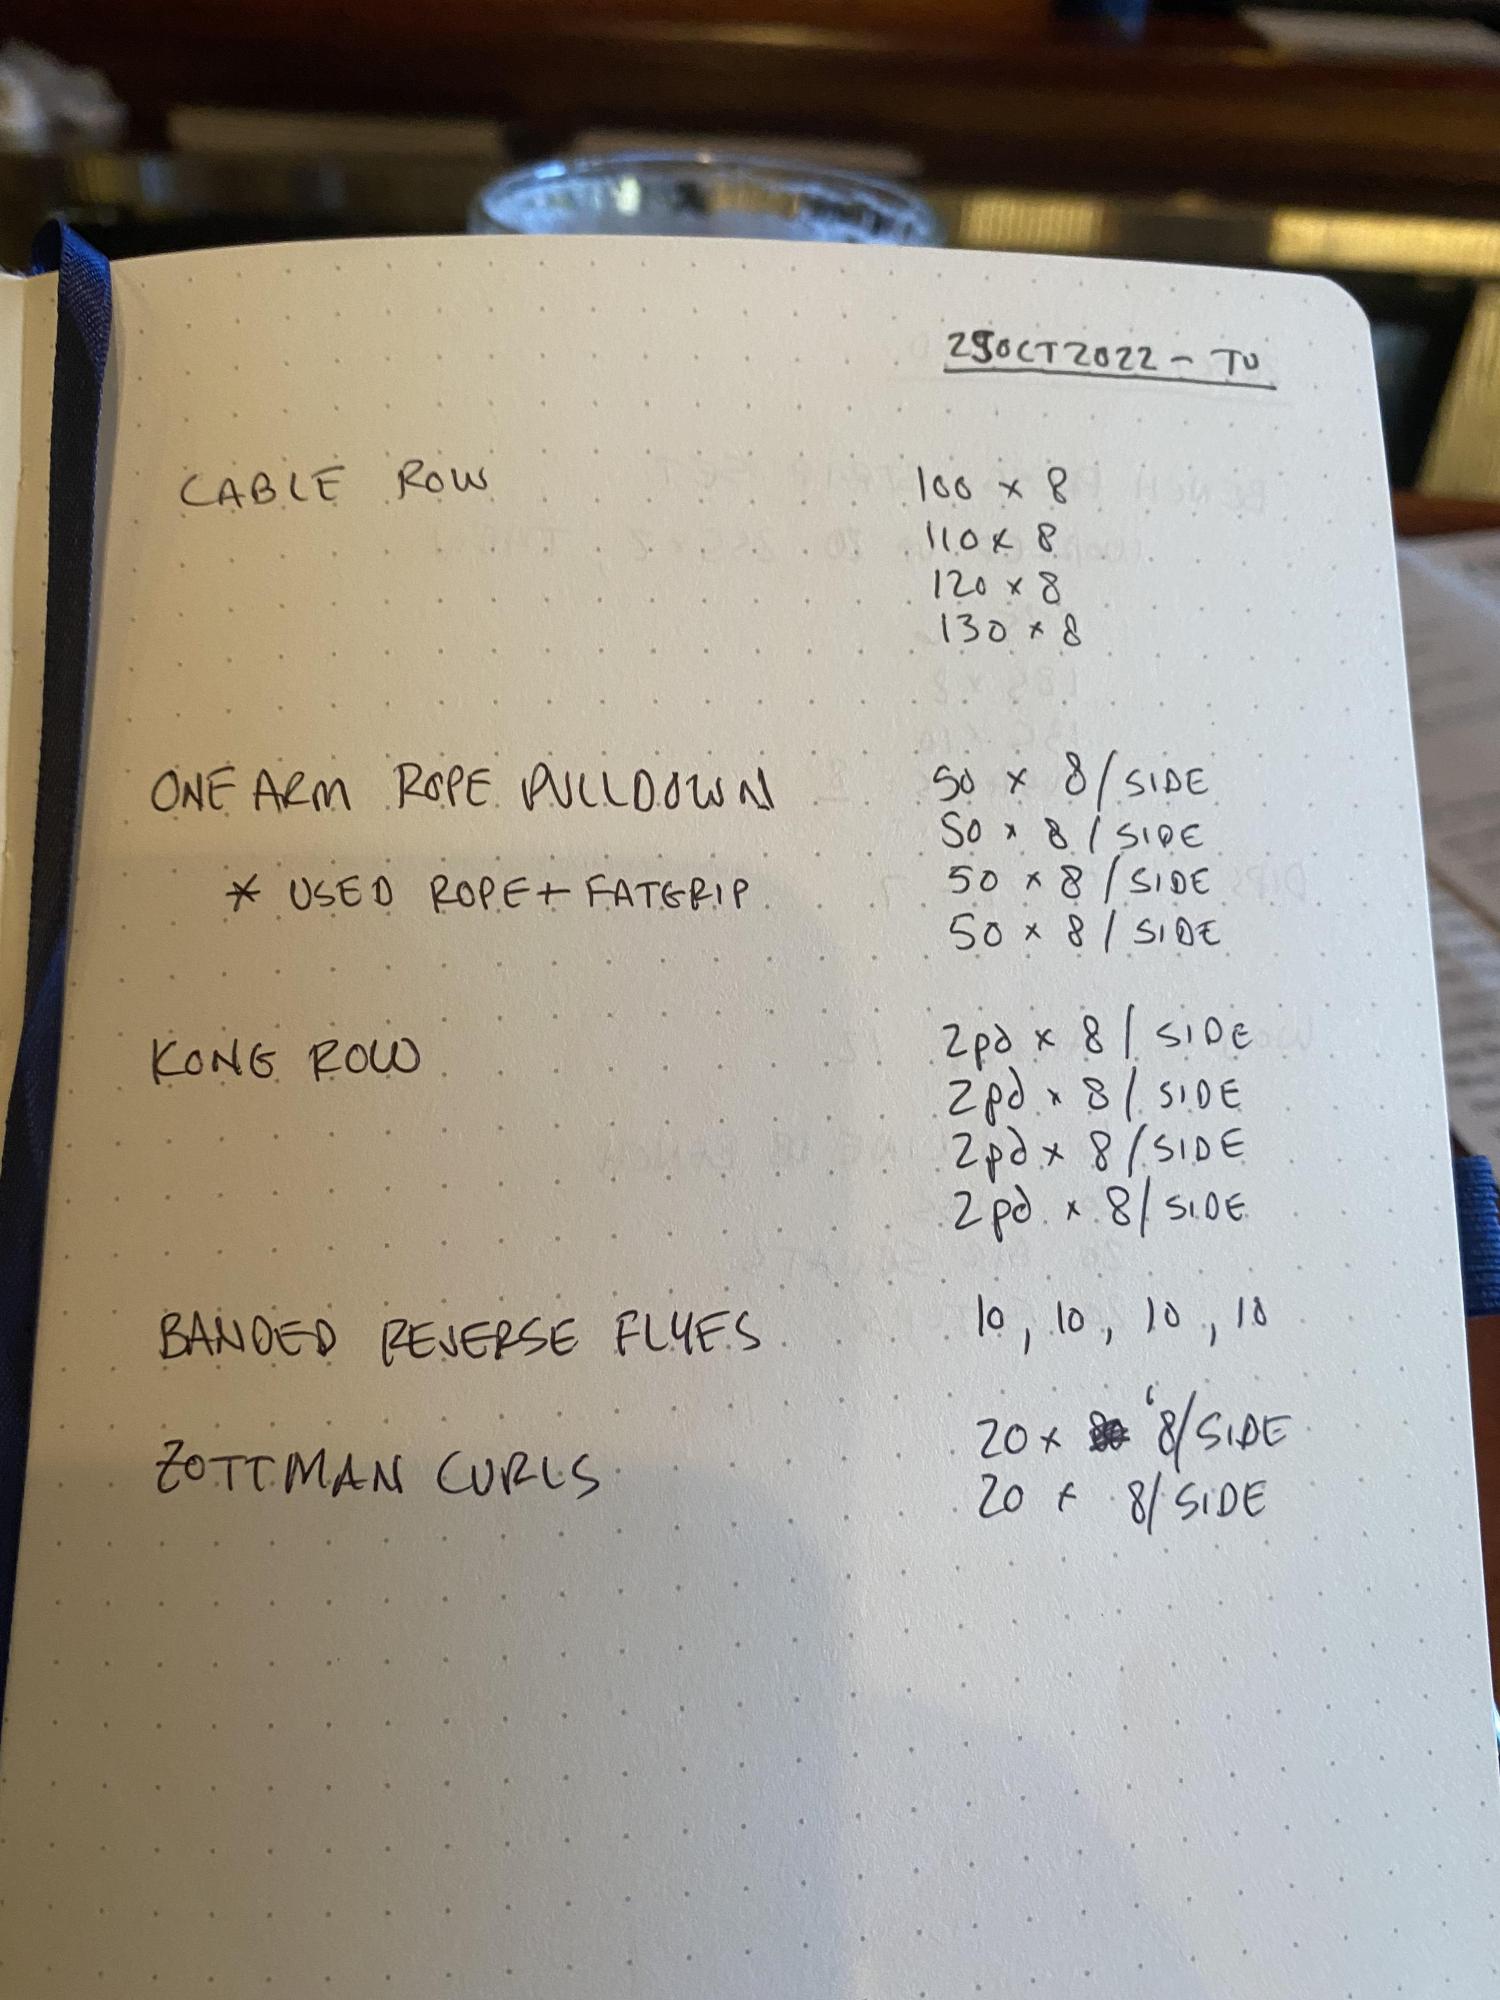 25OCT2022 - TU
CABLE ROW 100 x 8
110 x 8
120 x 8
130 x 8
ONE ARM ROPE PULLDOWN 50 x 8 / SIDE
50 x 8 / SIDE
* USED ROPE + FATGRIP 50 x 8 / SIDE
50 x 8 / SIDE
KONG ROW 2pd x 8 / SIDE
2pd x 8 / SIDE
2pd x 8 / SIDE
2pd x 8 / SIDE
BANDED REVERSE FLYES 10, 10, 10, 10
ZOTTMAN CURLS 20 x 8/SIDE
20 x 8/SIDE